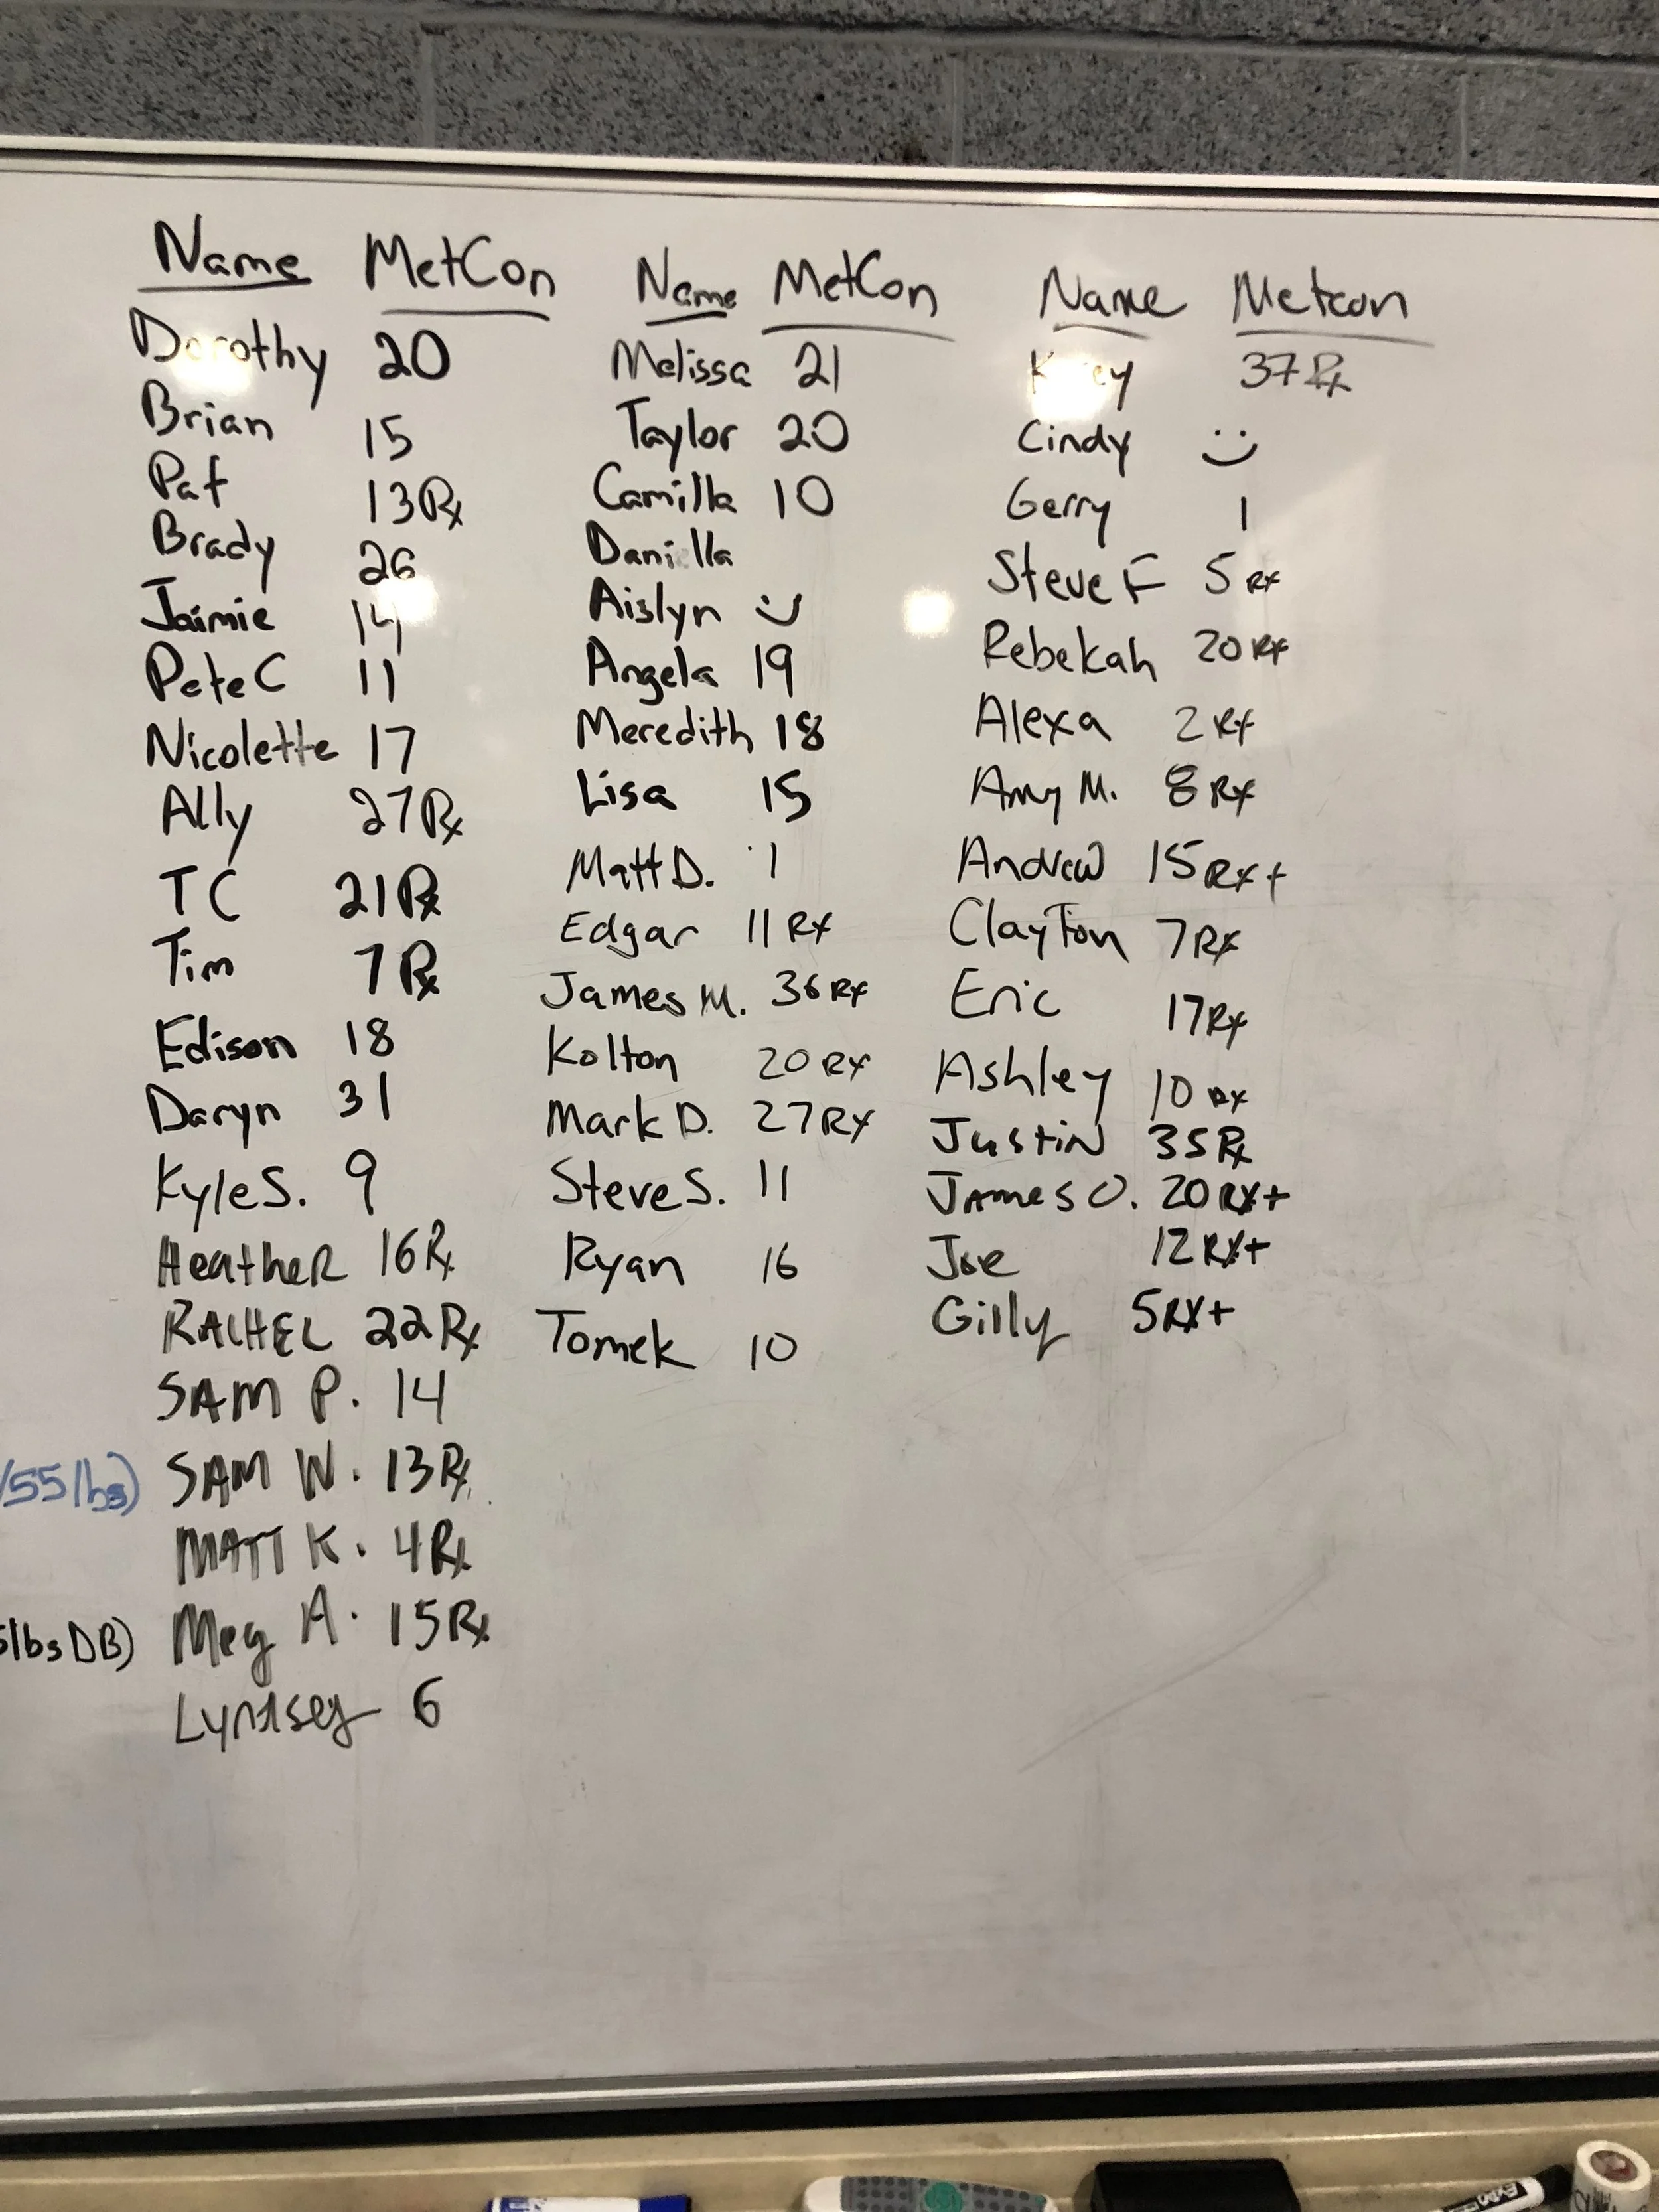 Name MetCon
Dorothy 20
Brian 15
Pat 13Rx
Brady 26
Jaimie 14
Pete C 11
Nicolette 17
Ally 27Rx
TC 21Rx
Tim 7Rx
Edison 18
Daryn 31
Kyle S. 9
Heather 16Rx
RACHEL 22Rx
SAM P. 14
/55lbs) SAM W. 13Rx
MATT K. 4Rx
lbs DB) Meg A. 15Rx
Lyndsey 6
Name MetCon
Melissa 21
Taylor 20
Camilla 10
Daniella
Aislyn :)
Angela 19
Meredith 18
Lisa 15
Matt D. 1
Edgar 11 RX
James M. 36 RX
Kolton 20 RX
Mark D. 27 RX
Steve S. 11
Ryan 16
Tomek 10
Name Metcon
37 Rx
Cindy :)
Gerry 1
Steve F 5 RX
Rebekah 20 RX
Alexa 2 RX
Amy M. 8 RX
Andrew 15 RX+
Clayton 7 RX
Eric 17 RX
Ashley 10 RX
Justin 35 Rx
James O. 20 RX+
Joe 12 RX+
Gilly 5 RX+
EXPO